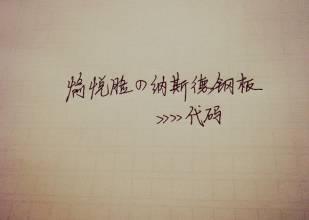 悦脸の纳斯德钢板
>>>>代码